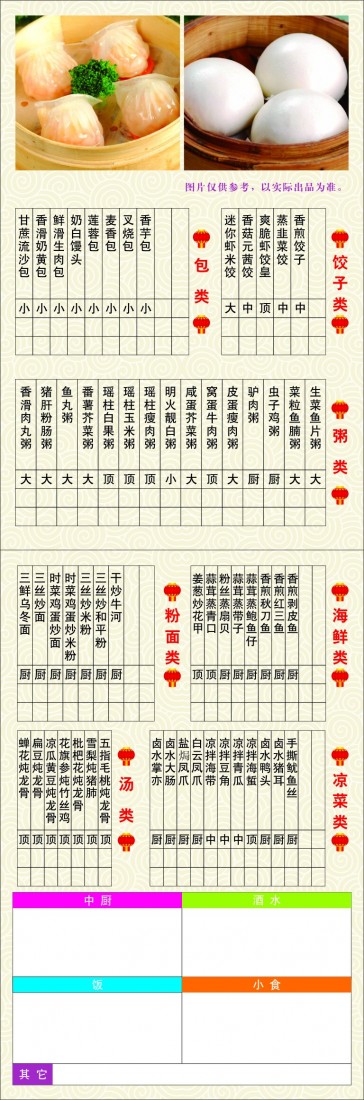 图片仅供参考，以实际出品为准。
饺子类
香煎饺子 中
蒸韭菜饺 中
爽脆虾饺皇 顶
香菇元茜饺 中
迷你虾米饺 大
包类
香芋包 小
叉烧包 小
麦香包 小
莲蓉包 小
奶白馒头 小
鲜滑生肉包 小
香滑奶黄包 小
甘蔗流沙包 小
粥类
生菜鱼片粥 大
菜粒鱼腩粥 大
虫子鸡粥 厨
驴肉粥 厨
皮蛋瘦肉粥 大
窝蛋牛肉粥 大
咸蛋芥菜粥 大
明火靓白粥 小
瑶柱瘦肉粥 顶
瑶柱玉米粥 顶
瑶柱白果粥 顶
番薯芥菜粥 大
鱼丸粥 大
猪肝粉肠粥 大
香滑肉丸粥 大
海鲜类
香煎剥皮鱼 厨
香煎红三鱼 厨
香煎秋刀鱼 厨
蒜茸蒸鲍鱼仔 厨
蒜茸蒸带子 厨
粉丝蒸扇贝 厨
蒜茸蒸青口 顶
姜葱炒花甲 顶
粉面类
干炒牛河 厨
三丝炒和平粉 厨
三丝炒米粉 厨
时菜鸡蛋炒米粉 厨
时菜鸡蛋炒面 厨
三丝炒面 厨
三鲜乌冬面 厨
凉菜类
手撕鱿鱼丝 厨
卤水猪耳 厨
卤水鸭头 厨
凉拌海蜇 顶
凉拌青瓜 中
凉拌豆角 中
凉拌海带 中
白云凤爪 厨
盐焗凤爪 厨
卤水大肠 厨
卤水掌亦 厨
汤类
五指毛桃炖龙骨 顶
雪梨炖猪肺 顶
枇杷花炖龙骨 顶
花旗参炖竹丝鸡 顶
凉瓜黄豆炖龙骨 顶
扁豆炖龙骨 顶
蝉花炖龙骨 顶
中厨
酒水
饭
小食
其它